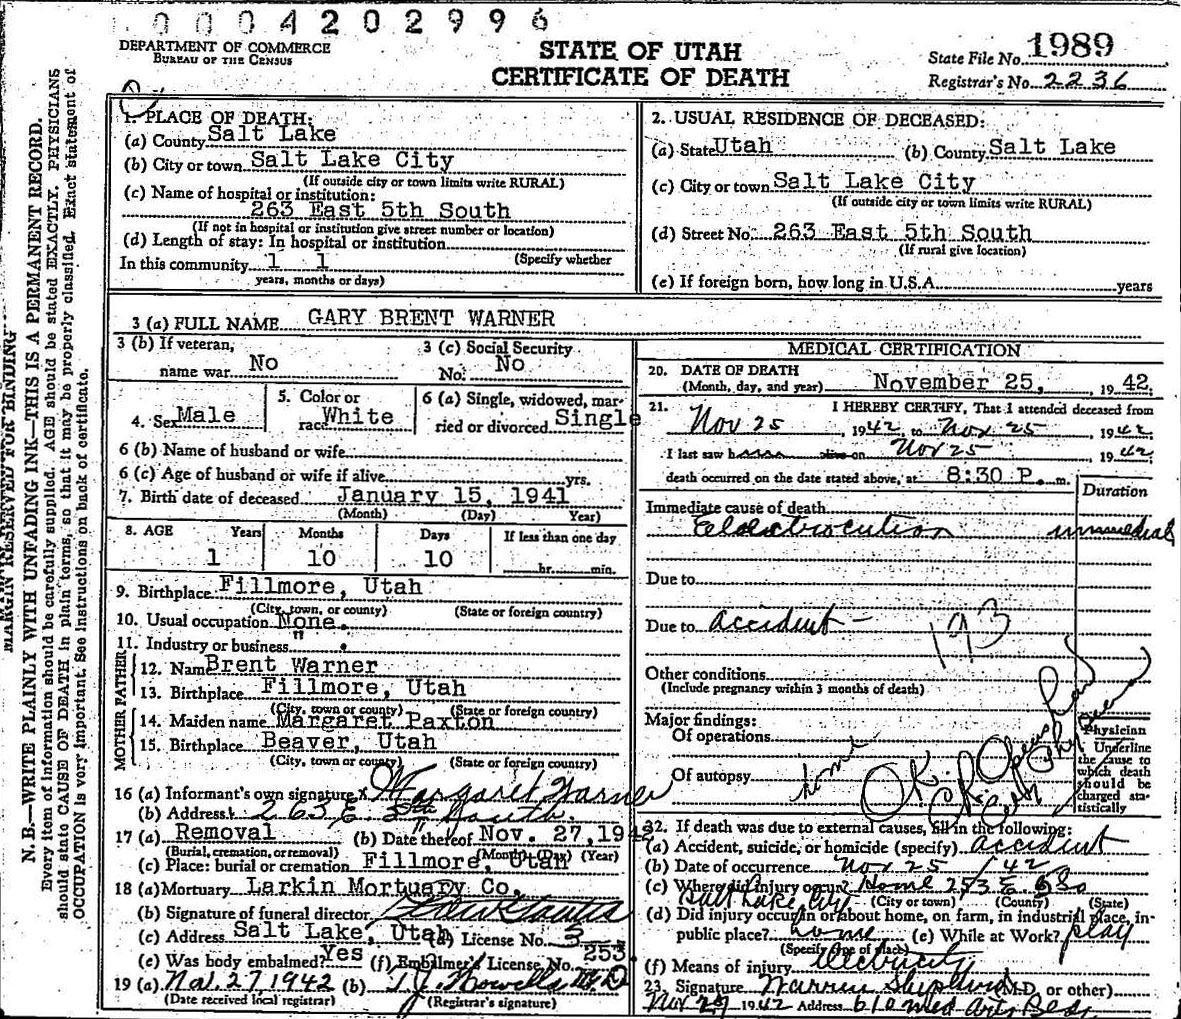 0004202996
DEPARTMENT OF COMMERCE
BUREAU OF THE CENSUS
STATE OF UTAH
CERTIFICATE OF DEATH
State File No. 1989
Registrar's No. 2236
MARGIN RESERVED FOR BINDING
N. B.—WRITE PLAINLY WITH UNFADING INK—THIS IS A PERMANENT RECORD.
Every item of information should be carefully supplied. AGE should be stated EXACTLY. PHYSICIANS
should state CAUSE OF DEATH in plain terms, so that it may be properly classified. Exact statement of
OCCUPATION is very important. See instructions on back of certificate.
1. PLACE OF DEATH:
(a) County Salt Lake
(b) City or town Salt Lake City
(If outside city or town limits write RURAL)
(c) Name of hospital or institution:
263 East 5th South
(If not in hospital or institution give street number or location)
(d) Length of stay: In hospital or institution
(Specify whether
In this community 1 1
years, months or days)
2. USUAL RESIDENCE OF DECEASED:
(a) State Utah (b) County Salt Lake
(c) City or town Salt Lake City
(If outside city or town limits write RURAL)
(d) Street No. 263 East 5th South
(If rural give location)
(e) If foreign born, how long in U.S.A. years
3 (a) FULL NAME GARY BRENT WARNER
3 (b) If veteran, name war No
3 (c) Social Security No. No
4. Sex Male
5. Color or race White
6 (a) Single, widowed, married or divorced Single
6 (b) Name of husband or wife
6 (c) Age of husband or wife if alive yrs.
7. Birth date of deceased January 15, 1941
(Month) (Day) Year)
8. AGE Years Months Days If less than one day
1 10 10 hr. min.
9. Birthplace Fillmore, Utah
(City, town, or county) (State or foreign country)
10. Usual occupation None.
11. Industry or business " .
FATHER
12. Name Brent Warner
13. Birthplace Fillmore, Utah
(City, town or county) (State or foreign country)
MOTHER
14. Maiden name Margaret Paxton
15. Birthplace Beaver, Utah
(City, town or county) (State or foreign country)
16 (a) Informant's own signature x Margaret Warner
(b) Address 263 E. 5th South.
17 (a) Removal (b) Date thereof Nov. 27, 1942
(Burial, cremation, or removal) (Month) (Day) (Year)
(c) Place: burial or cremation Fillmore, Utah
18 (a) Mortuary Larkin Mortuary Co.
(b) Signature of funeral director
(c) Address Salt Lake, Utah (d) License No. 3
(e) Was body embalmed? Yes (f) Embalmer's License No. 253
19 (a) Nov. 27, 1942 (b) T. J. Howells M.D
(Date received local registrar) (Registrar's signature)
MEDICAL CERTIFICATION
20. DATE OF DEATH
(Month, day, and year) November 25, 1942.
21. I HEREBY CERTIFY, That I attended deceased from
Nov 25, 1942, to Nov. 25, 1942
I last saw h alive on Nov 25 1942
death occurred on the date stated above, at 8:30 P. m.
Duration
Immediate cause of death
Electrocution
Due to
Due to accident - 193
Other conditions
(Include pregnancy within 3 months of death)
Major findings:
Of operations
Of autopsy home
OK.
City Physician
Physician
Underline
the cause to
which death
should be
charged statistically
22. If death was due to external causes, fill in the following:
(a) Accident, suicide, or homicide (specify) accident
(b) Date of occurrence Nov 25 / 42
(c) Where did injury occur? Home 253 E. 5 So
Salt Lake City (City or town) (County) (State)
(d) Did injury occur in or about home, on farm, in industrial place, in-
public place? home (e) While at Work? play
(Specify type of place)
(f) Means of injury electricity
23. Signature Warren Shepherd (M.D. or other)
Nov 27 1942 Address 610 Med Arts Bldg.